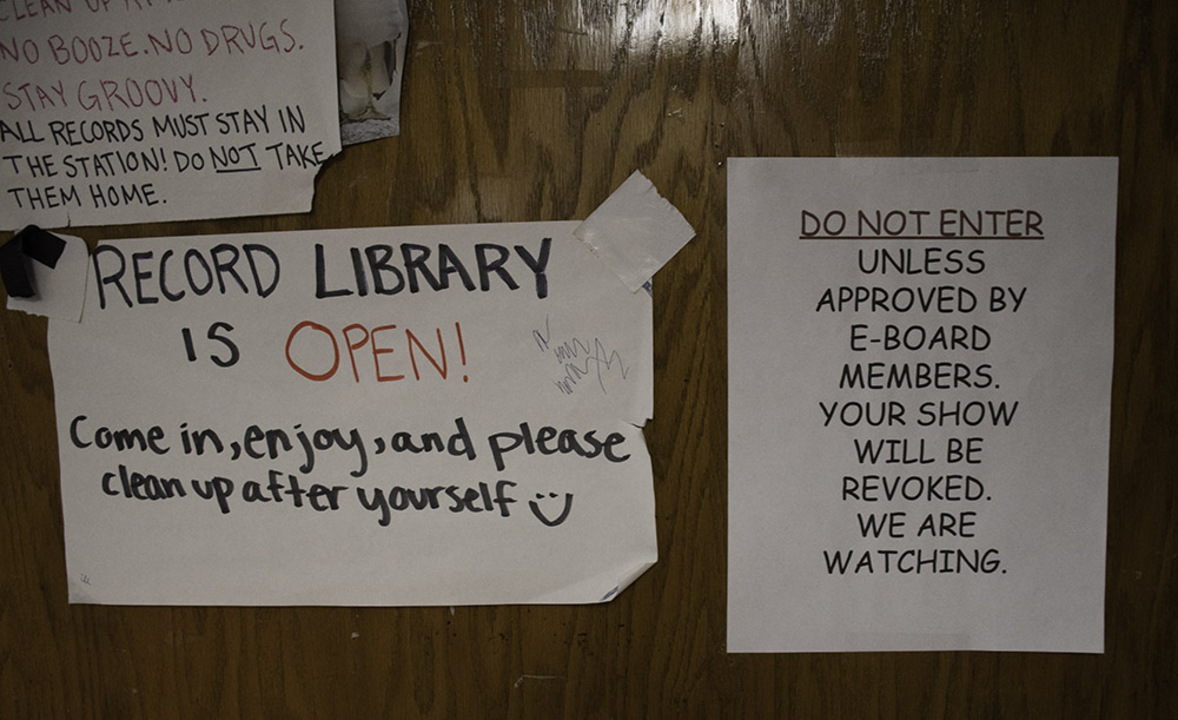 CLEAN UP
NO BOOZE. NO DRUGS.
STAY GROOVY.
ALL RECORDS MUST STAY IN
THE STATION! DO NOT TAKE
THEM HOME.
RECORD LIBRARY
IS OPEN!
Come in, enjoy, and please
clean up after yourself
DO NOT ENTER
UNLESS
APPROVED BY
E-BOARD
MEMBERS.
YOUR SHOW
WILL BE
REVOKED.
WE ARE
WATCHING.